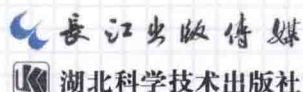 长江出版传媒
湖北科学技术出版社